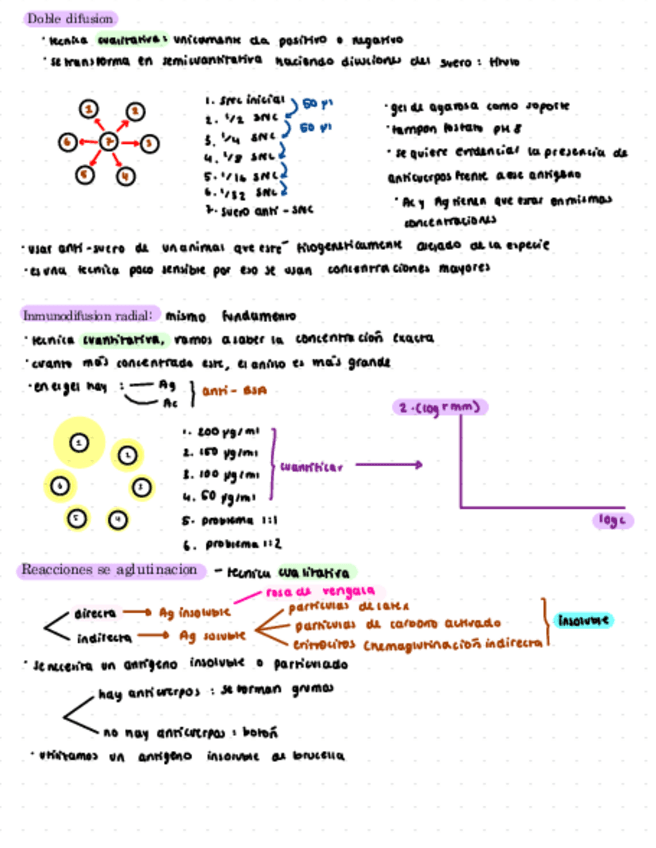 Doble difusion
· tecnica cualitativa: unicamente da positivo o negativo
· se transforma en semicuantitativa haciendo diluciones del suero: titulo
1
2
6
7
3
5
4
1. SNC inicial
2. 1/2 SNC
3. 1/4 SNC
4. 1/8 SNC
5. 1/16 SNC
6. 1/32 SNC
7. suero anti-SNC
50 μl
50 μl
· gel de agarosa como soporte
· tampon fosfato pH 8
· se quiere evidenciar la presencia de
anticuerpos frente a ese antigeno
· Ac y Ag tienen que estar en mismas
concentraciones
· usar anti-suero de un animal que esté filogeneticamente alejado de la especie
· es una tecnica poco sensible por eso se usan concentraciones mayores
Inmunodifusion radial: mismo fundamento
· tecnica cuantitativa, vamos a saber la concentración exacta
· cuanto más concentrado este, el anillo es más grande
· en el gel hay : Ag
Ac
anti-BSA
1
2
6
3
5
4
1. 200 μg/ml
2. 150 μg/ml
3. 100 μg/ml
4. 50 μg/ml
5. problema 1:1
6. problema 1:2
cuantificar
2·(log r mm)
log c
Reacciones se aglutinacion - tecnica cualitativa
rosa de vengala
directa → Ag insoluble
indirecta → Ag soluble
particulas de latex
particulas de carbono activado
eritrocitos (hemaglutinación indirecta)
insoluble
· se necesita un antigeno insoluble o particulado
hay anticuerpos : se forman grumos
no hay anticuerpos : botón
· utilizamos un antigeno insoluble de brucella